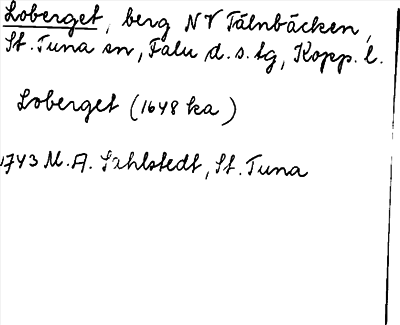 Loberget, berg NV Fälnbäcken,
St. Tuna sn, Falu d.s. tg, Kopp. l.
Loberget (1648 ka)
1743 M. A. Sahlstedt, St. Tuna